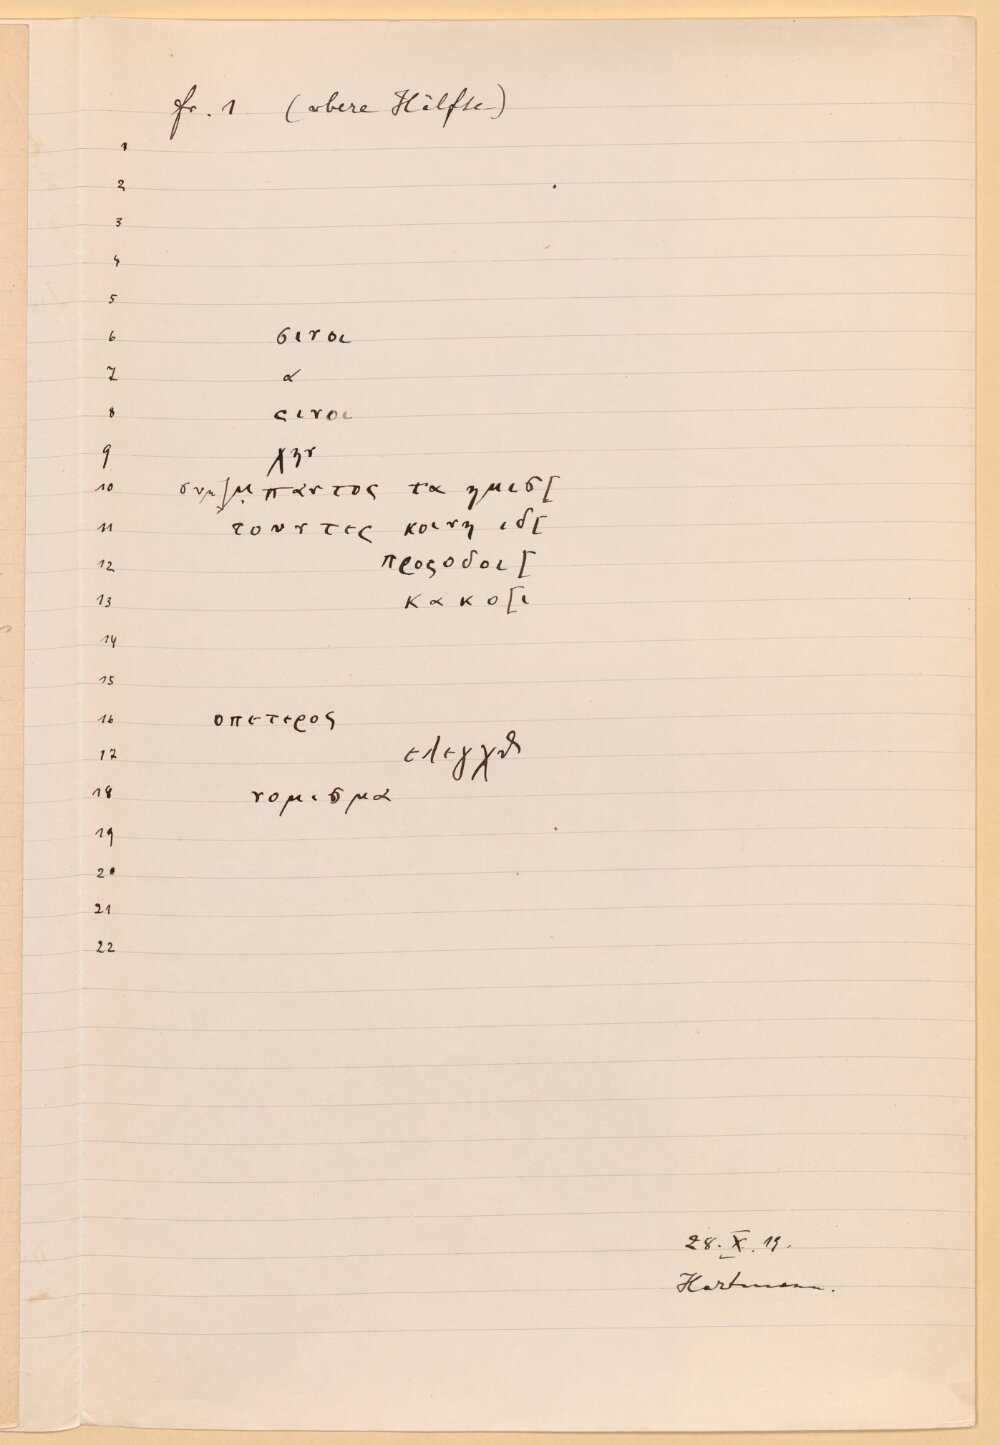 fr. 1 (obere Hälfte)
1
2
3
4
5
6 σινοι
7 α
8 ϲινοι
9 χην
10 συμ]μ̣παντος τα ημισ[
11 τουντες κοινη ιδ[
12 προςοδοι[
13 κακο[ι
14
15
16 οπετερος
17 ελεγχθ
18 νομισμα
19
20
21
22
28. X. 19.
Hartmann.